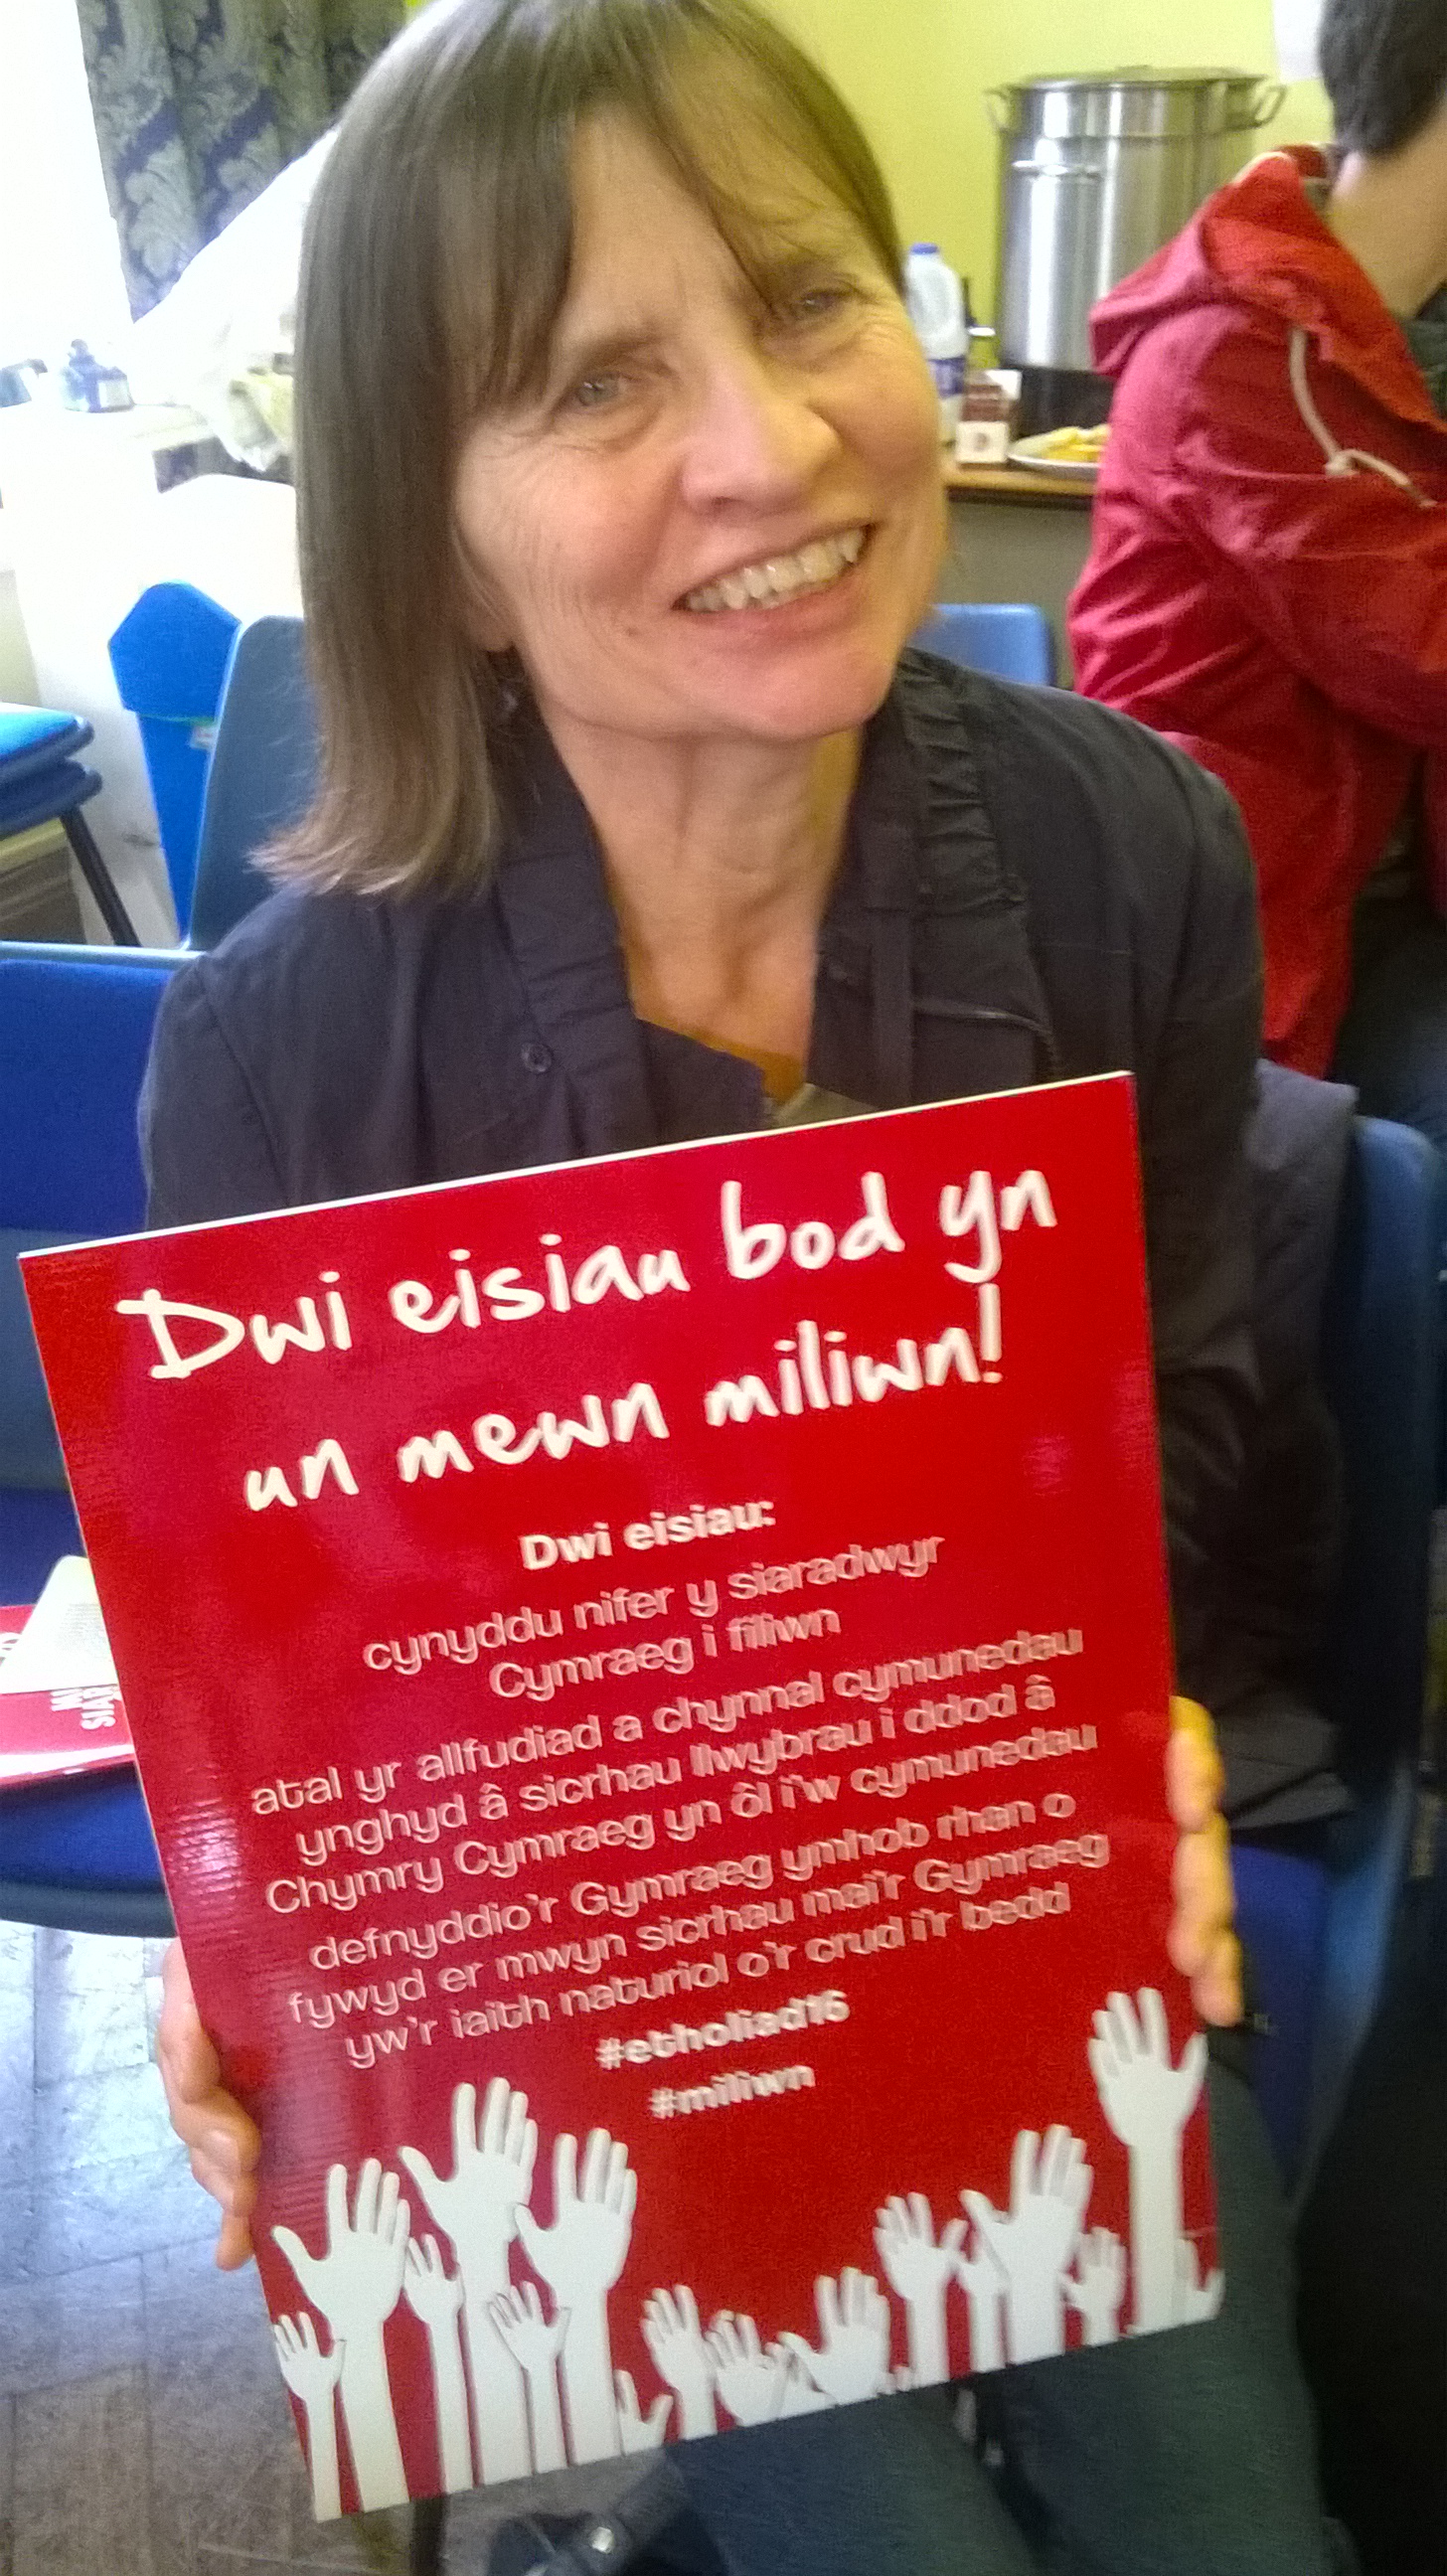 Dwi eisiau bod yn
un mewn miliwn!
Dwi eisiau:
cynyddu nifer y siaradwyr
Cymraeg i filiwn
atal yr allfudiad a chynnal cymunedau
ynghyd â sicrhau llwybrau i ddod â
Chymry Cymraeg yn ôl i'w cymunedau
defnyddio'r Gymraeg ymhob rhan o
fywyd er mwyn sicrhau mai'r Gymraeg
yw'r iaith naturiol o'r crud i'r bedd
#etholiad16
#miliwn